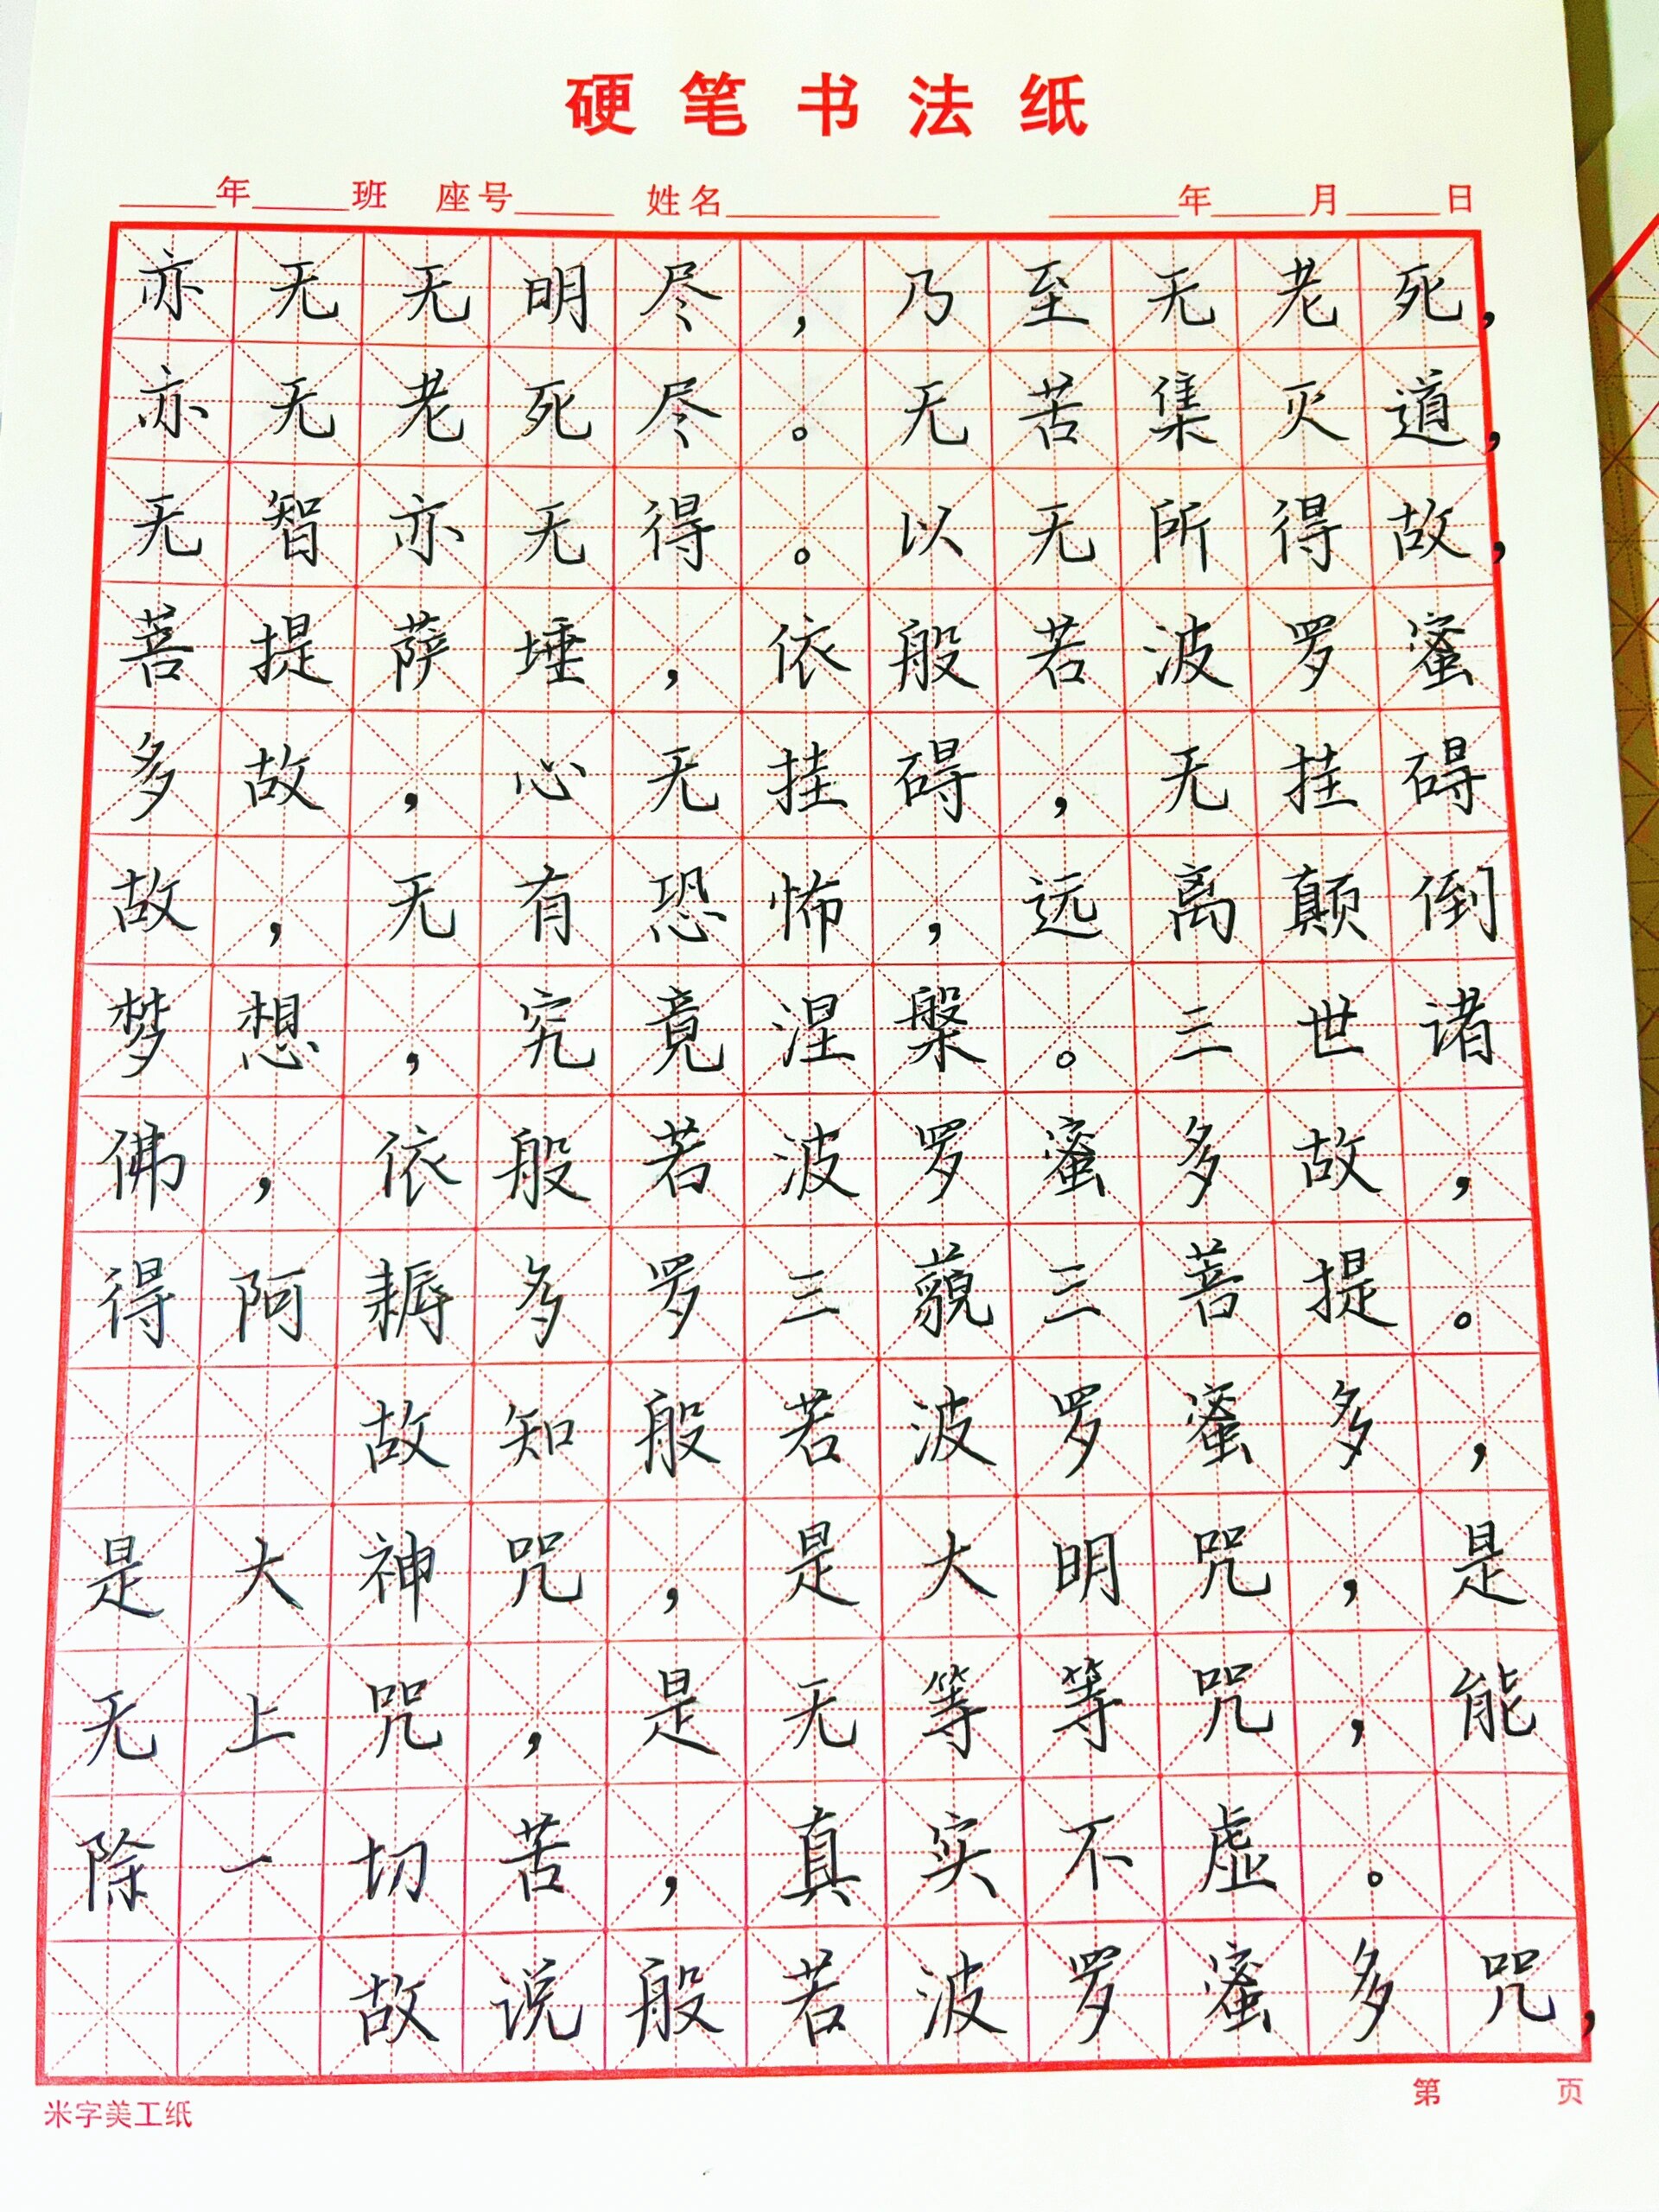 硬笔书法纸
年 班 座号 姓名 年 月 日
亦无无明尽，乃至无老死，
亦无老死尽。无苦集灭道，
无智亦无得。以无所得故，
菩提萨埵，依般若波罗蜜
多故，心无挂碍，无挂碍
故，无有恐怖，远离颠倒
梦想，究竟涅槃。三世诸
佛，依般若波罗蜜多故，
得阿耨多罗三藐三菩提。
故知般若波罗蜜多，
是大神咒，是大明咒，是
无上咒，是无等等咒，能
除一切苦，真实不虚。
故说般若波罗蜜多咒，
米字美工纸 第 页